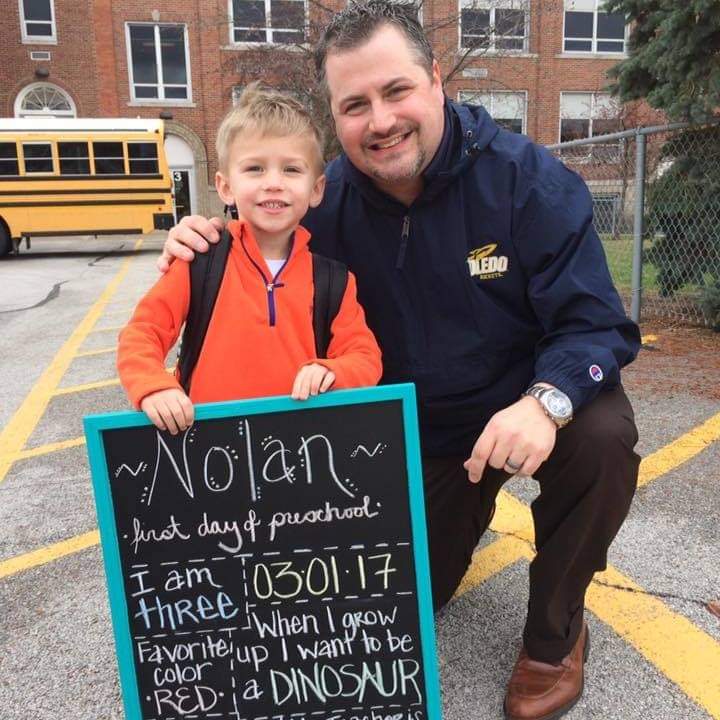 3
TOLEDO
ROCKETS
~Nolan~
first day of preschool
I am
three
03·01·17
Favorite
color
·RED·
When I grow
up I want to be
a DINOSAUR